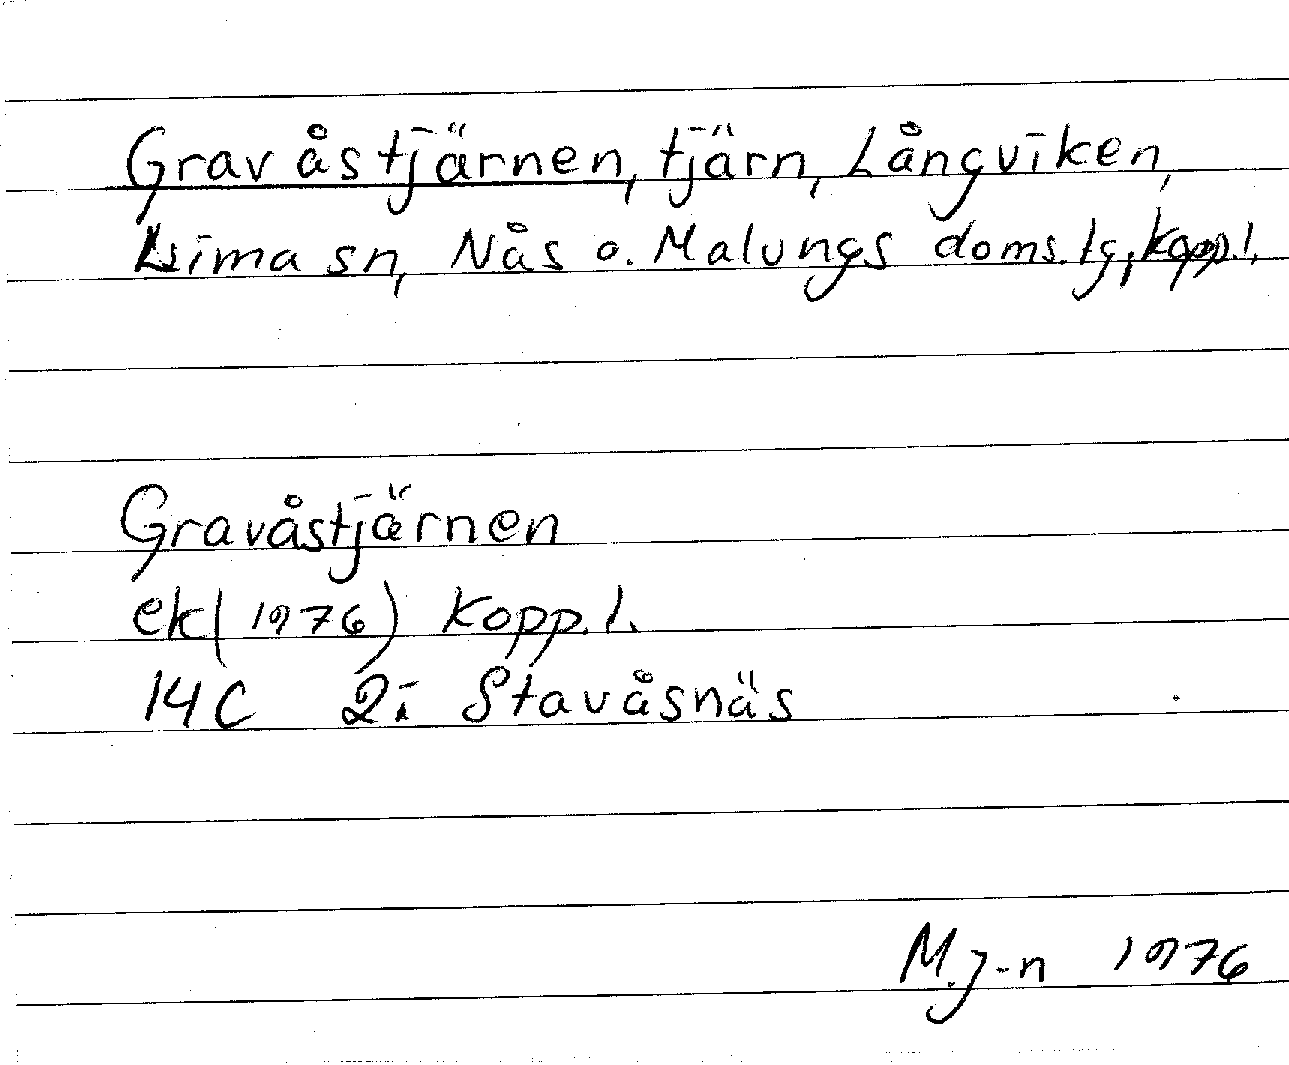 Gravåstjärnen, tjärn, Långviken,
Lima sn, Nås o. Malungs doms. tg, Kopp.l.
Gravåstjärnen
ek(1976) Kopp.l.
14C 2i Stavåsnäs
M.J-n 1976